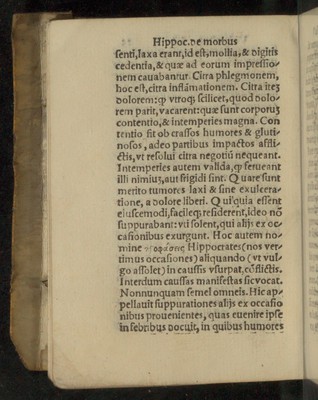 Hippoc. De morbus
senti, laxa erant, id est, mollia, & digitis
cedentia, & quæ ad eorum impressio-
nem cauabantur. Citra phlegmonem,
hoc est, citra inflãmationem. Citra iteʒ
dolorem: ꝙ vtroqʒ scilicet, quod dolo-
rem parit, vacarent: quæ sunt corporuʒ
contentio, & intemperies magna. Con
tentio fit ob crassos humores & gluti-
nosos, adeo partibus impactos affli-
ctis, vt resolui citra negotiũ nequeant.
Intemperies autem valida, ꝙ serueant
illi nimiuʒ, aut frigidi sint. Quare sunt
merito tumores laxi & sine exulcera-
tione, a dolore liberi. Qui quia essent
eiuscemodi, facileqʒ residerent, ideo nõ
suppurabant: vti solent, qui alijs ex oc-
casionibus exurgunt. Hoc autem no-
mine Hippocrates (nos ver-
timus occasiones) aliquando (vt vul-
go assolet) in caussis vsurpat, cõflictis.
Interdum caussas manifestas sic vocat.
Nonnunquam semel omneis. Hic ap-
pellauit suppurationes alijs ex occasio
nibus prouenientes, quas euenire ipse
in febribus docuit, in quibus humores